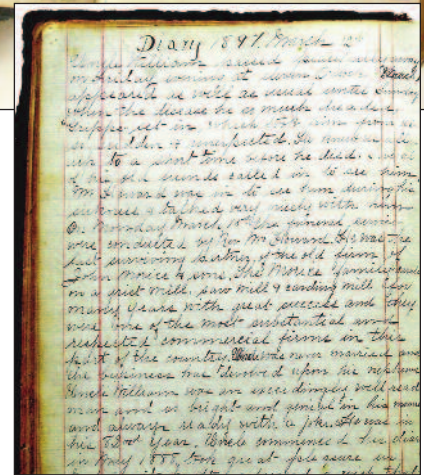 Diary 1897. March 12th
Uncle William passed away
on Friday evening at seven
appeared as well as usual until Sunday
when the disease he so much dreaded
Grippe set in which took him from us
so sudden & unexpected. He knew
us to a short time before he died. Several
of his old friends called in to see him.
Mr Howard was in to see him during his
sickness & talked very nicely with him
On Monday March 15th the funeral services
were conducted by Rev Mr Howard. He was the
last surviving partner of the old firm of
John Morice & sons. The Morice family carried
on a grist mill, saw mill & carding mill for
many years with great success and they
were one of the most substantial and
respected commercial firms in this
part of the country. Uncle was never married and
the business has devolved upon his nephews
Uncle William was an exceedingly well read
man and so bright and genial in his manner
and always ready with a joke. He was in
his 82nd year. Uncle commenced this diary
in May 1888, took great pleasure in